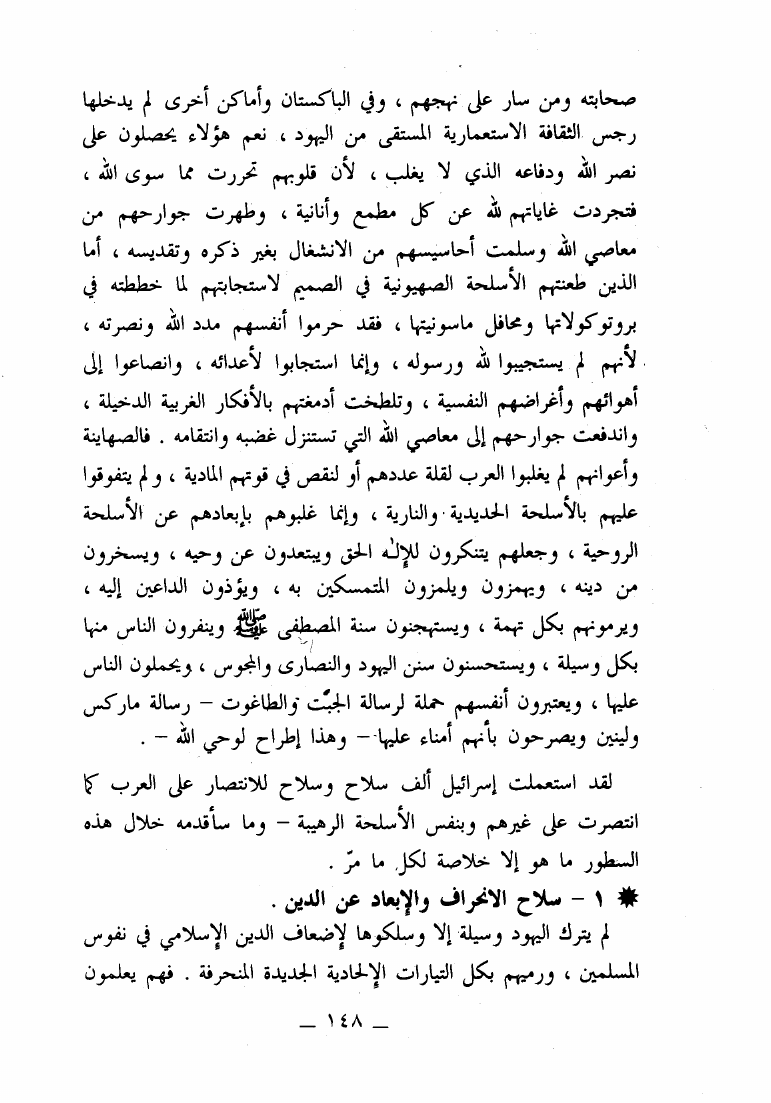 صحابته ومن سار على نهجهم ، وفي الباكستان وأماكن أخرى لم يدخلها
رجس الثقافة الاستعمارية المستقى من اليهود ، نعم هؤلاء يحصلون على
نصر الله ودفاعه الذي لا يغلب ، لأن قلوبهم تحررت مما سوى الله ،
فتجردت غاياتهم لله عن كل مطمع وأنانية ، وطهرت جوارحهم من
معاصي الله وسلمت أحاسيسهم من الانشغال بغير ذكره وتقديسه ، أما
الذين طعنتهم الأسلحة الصهيونية في الصميم لاستجابتهم لما خططته في
بروتوكولاتها ومحافل ماسونيتها ، فقد حرموا أنفسهم مدد الله ونصرته ،
لأنهم لم يستجيبوا لله ورسوله ، وإنما استجابوا لأعدائه ، وانصاعوا إلى
أهوائهم وأغراضهم النفسية ، وتلطخت أدمغتهم بالأفكار الغربية الدخيلة ،
واندفعت جوارحهم إلى معاصي الله التي تستنزل غضبه وانتقامه . فالصهاينة
وأعوانهم لم يغلبوا العرب لقلة عددهم أو لنقص في قوتهم المادية ، ولم يتفوقوا
عليهم بالأسلحة الحديدية والنارية ، وإنما غلبوهم بإبعادهم عن الأسلحة
الروحية ، وجعلهم يتنكرون للإله الحق ويبتعدون عن وحيه ، ويسخرون
من دينه ، ويهمزون ويلمزون المتمسكين به ، ويؤذون الداعين إليه ،
ويرمونهم بكل تهمة ، ويستهجنون سنة المصطفى ﷺ وينفرون الناس منها
بكل وسيلة ، ويستحسنون سنن اليهود والنصارى والمجوس ، ويحملون الناس
عليها ، ويعتبرون أنفسهم حملة لرسالة الجبت والطاغوت – رسالة ماركس
ولينين ويصرحون بأنهم أمناء عليها – وهذا إطراح لوحي الله – .
لقد استعملت إسرائيل ألف سلاح وسلاح للانتصار على العرب كما
انتصرت على غيرهم وبنفس الأسلحة الرهيبة – وما سأقدمه خلال هذه
السطور ما هو إلا خلاصة لكل ما مرّ .
✸ ١ – سلاح الانحراف والإبعاد عن الدين .
لم يترك اليهود وسيلة إلا وسلكوها لإضعاف الدين الإسلامي في نفوس
المسلمين ، ورميهم بكل التيارات الإلحادية الجديدة المنحرفة . فهم يعلمون
– ١٤٨ –